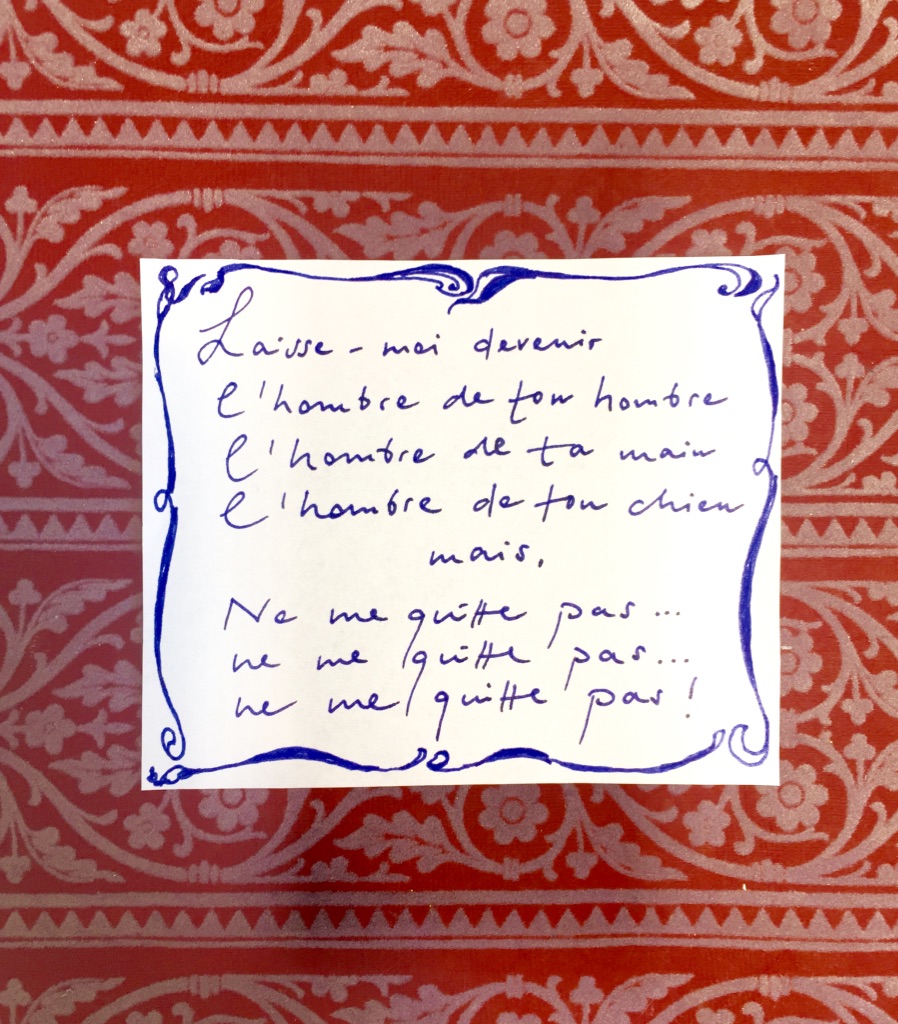 Laisse-moi devenir
l'hombre de ton hombre
l'hombre de ta main
l'hombre de ton chien
mais,
Ne me quitte pas...
ne me quitte pas...
ne me quitte pas!